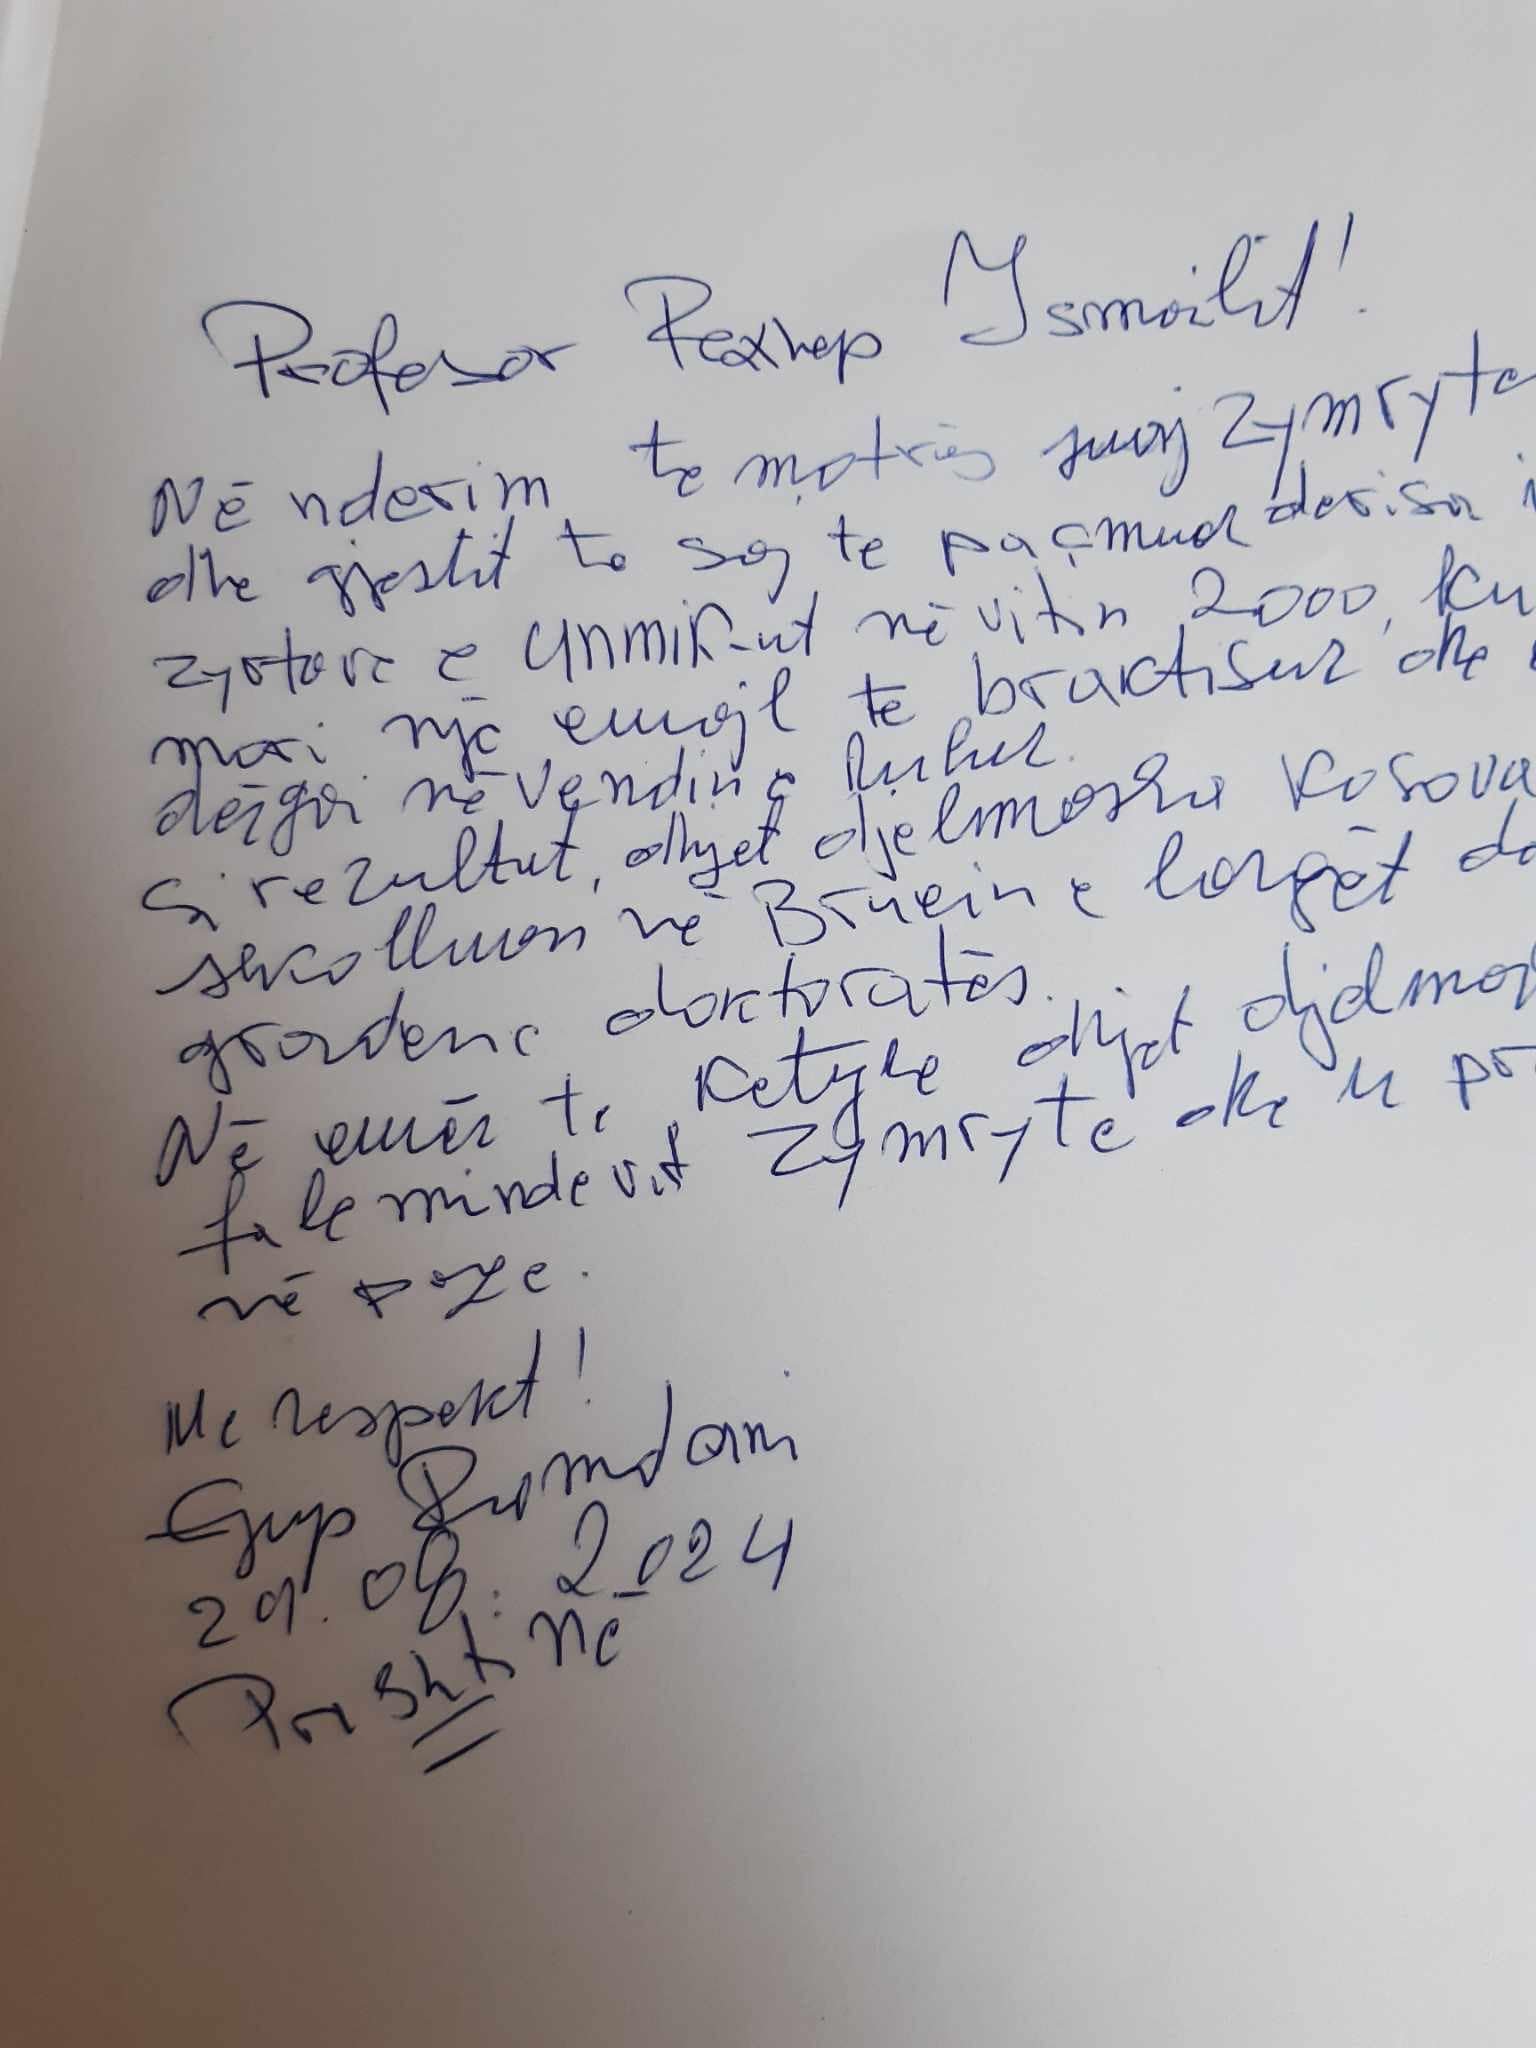 Profesor Rexhep Ismailit!
Në nderim te motrës suaj Zymryte
dhe gjestit te saj te paçmud derisa i
zyrtare e UNMIK-ut në vitin 2000, ku
mori një emajl te braktisur dhe
dërgoi në vendin e duhur.
Si rezultat, dhjet djelmosha Kosova
shkolluan në Bruein e largët
gradene doktoratës.
Në emër te ketyre dhjet djelmosh
falemindevit Zymryte dhe u
në paqe.
Me respekt!
Ejup Ramdani
29.08.2024
Prishtinë